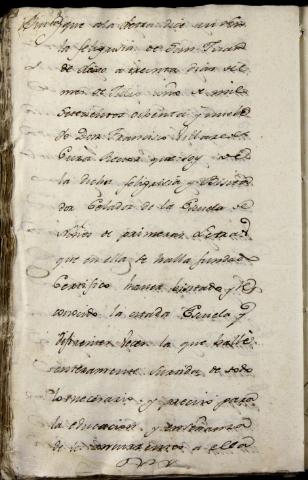 que a la letra dice así En
la feligresia de San Tirso
de Abres a treinta dias del
mes de Julio año de mil
Setecientos ochenta y nuebe
Yo Don Francisco Villares
Cura Rector que soy de
la dicha feligresia y Visita
dor Celador de la Escuela de
Niños de primeras Letras
que en ella se halla fundada
Certifico haver visitado y re
conocido la citada Escuela
diferentes veces la que hallé
enteramente surtida de todo
lo necesario y preciso para
la educacion y enseñanza
de los concurrentes a ella